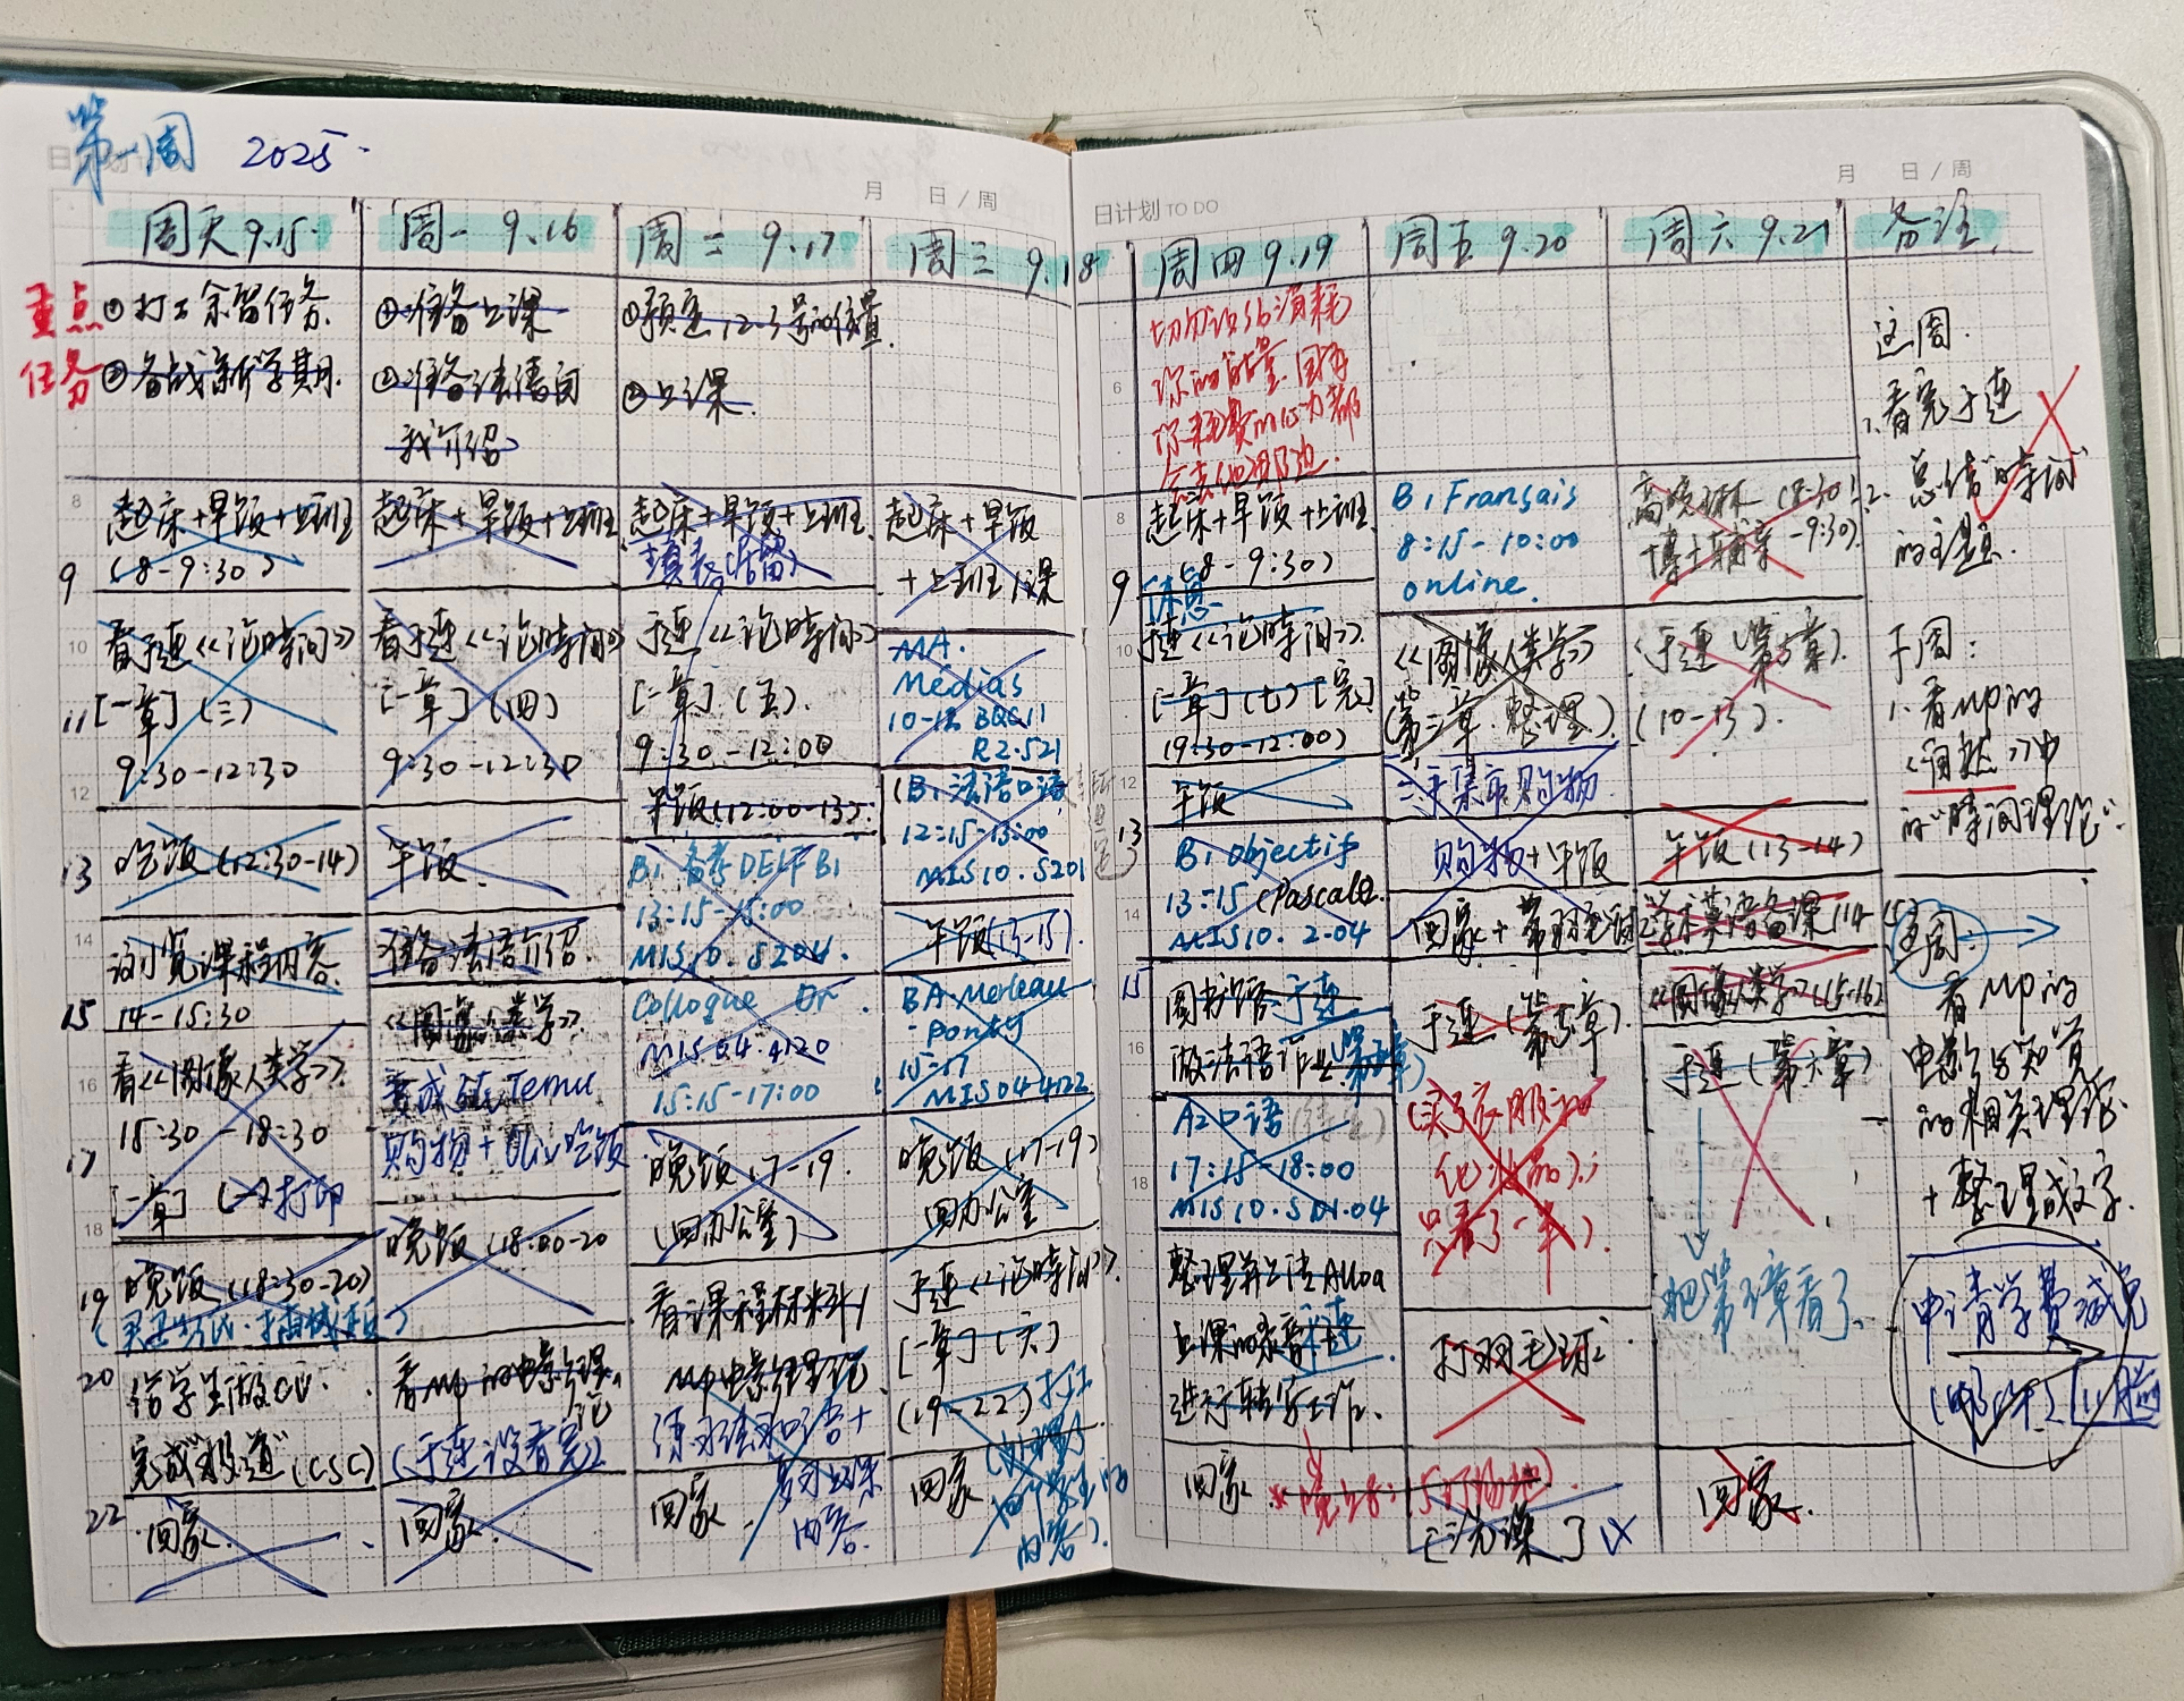 第一周 2025.
日计划
月 日/周
周天 9.15.
周一 9.16
周二 9.17
周三 9.18
重点
任务
①打工余留任务.
②备战新学期.
①准备上课
②准备法语自
我介绍
①预定12-3号的位置.
②上课.
8
9
10
11
12
13
14
15
16
17
18
19
20
22
起床+早饭+上班
(8-9:30)
看于连《论時间》
[一章](三)
9:30-12:30
吃饭(12:30-14)
浏览课程内容.
14-15:30
看《图像人类学》.
15:30-18:30
[一章] 打印
晚饭(18:30-20)
给学生做CV.
完成"报道"(CSC)
回家.
起床+早饭+上班
看于连《论時间》
[一章](四)
9:30-12:30
午饭.
准备法语介绍.
《图像人类学》.
变成逛Temu
购物+Oliv吃饭
晚饭(18:00-20
看MP的电影理
论
(于连没看完).
回家.
起床+早饭+上班.
填表(居留).
于连《论時间》
[一章](五).
9:30-12:00
午饭(12:00-13).
B1 备考DELF B1
13:15-15:00
MIS10.S204.
Colloque Dr.
MIS04.4120
15:15-17:00
晚饭17-19.
(回办公室)
看课程材料/
MP电影理论.
回家.
内容.
起床+早饭
+上班/课
MA.
Médias
BQC11
R2.521
(B1法语口语
12:15-13:00
MIS10.S201
午饭(13-15).
BA.Merleau
-Ponty
15-17
MIS04 4122
晚饭(17-19)
回办公室
于连《论時间》.
[一章](六)
(19-22)
回家
内容).
日计划 TO DO
月 日/周
周四 9.19
周五 9.20
周六 9.21
备注.
6
8
9
10
12
13
14
15
16
18
切勿让sb消耗
你的能量.因为
你耗费的心力都
会去他那边.
起床+早饭+上班.
(8-9:30)
休息
于连《论時间》.
[一章](七)[完]
(9:30-12:00)
午饭
B1 objectif
13:15 (Pascale.
MIS10.2.04
图书馆于连
做法语作业
A2口语
17:15-18:00
MIS10.S01.04
整理并上传Alloa
上课的录音
进行转写工作.
回家
B1 Français
8:15-10:00
online.
《图像人类学》
(第三章.整理)
二手集市购物.
购物+午饭
于连(第5章).
(买了衣服和
化妆品);
只看了一半).
打羽毛球.
博士辅案-9:30).
于连(第5章).
(10-13).
午饭(13-14)
学术英语备课(14-15)
《图像人类学》(15-16)
于连(第六章)
把第5章看了.
回家.
这周.
1.看完于连
2.总结"時间"
的主题.
下周:
1.看MP的
《自然》中
的"時间理论".
这周.
看MP的
电影与知觉
的相关理论.
+整理成文字.
申请学费减免